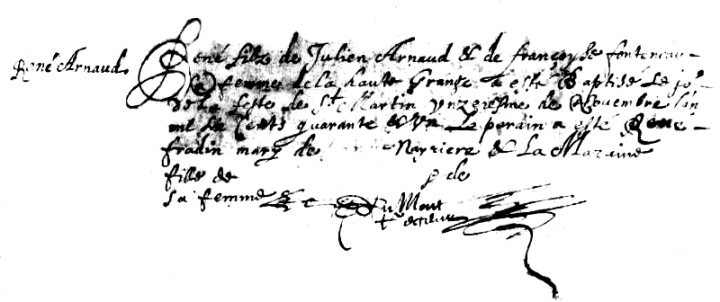 René Arnaud
René filz de Julien Arnaud & de françoyse fonteneau
sa femme de la haute Grange a esté Baptisé le jor
de la feste de St Martin unzeiesme de Novembre l'an
mil six cents quarante & un Le parain a esté René
fradin mary de Narriere & La Maraine
fille de p de
sa femme
du Mont